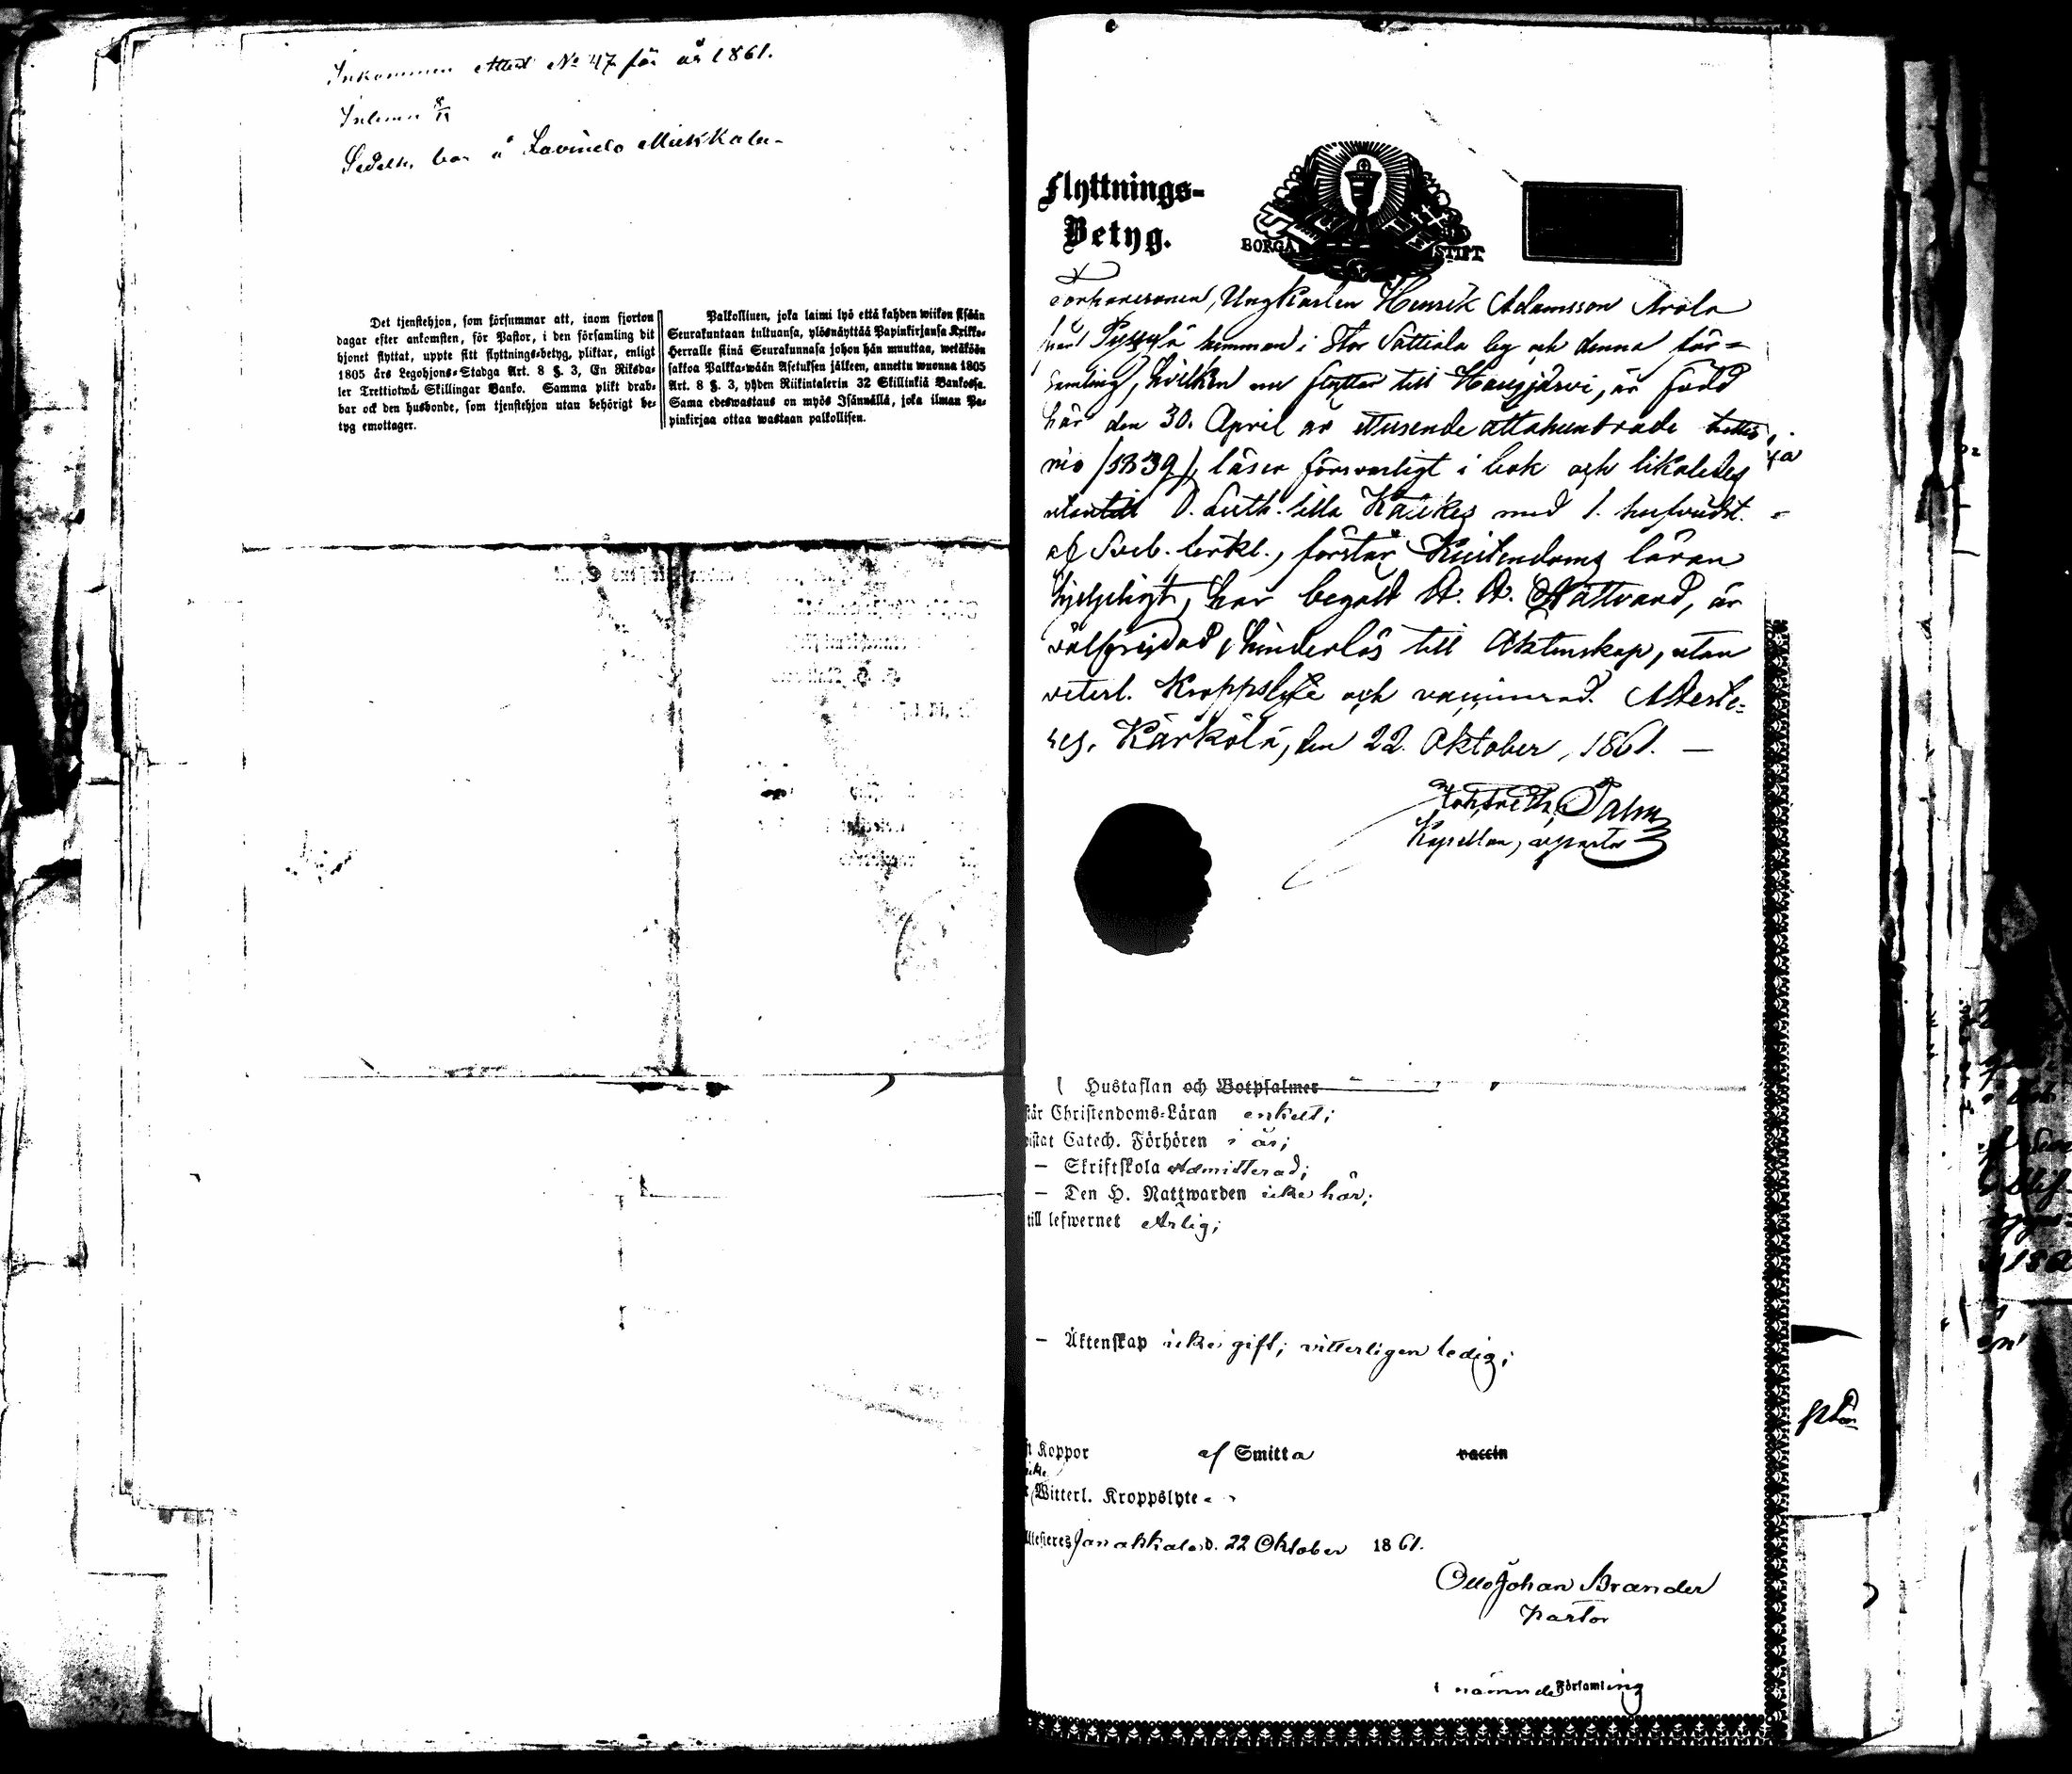 Inkommen Attest No 47 för år 1861.
Det tjenstehjon, som försummar att, inom fjorton
dagar efter ankomsten, för Pastor, i den församling dit
hjonet flyttat, uppte sitt flyttnings-betyg, pliktar, enligt
1805 års Legohjons-Stadga Art. 8 §. 3, En Riksda-
ler Trettiotwå Skillingar Banko. Samma plikt drab-
bar ock den husbonde, som tjenstehjon utan behörigt be-
tyg emottager.
Palkolliuen, joka laimi lyö että kahden wiikon sisään
Seurakuntaan tultuansa, ylösnäyttää Papinkirjansa Kirkko-
Herralle siinä Seurakunnasa johon hän muuttaa, wetäköön
sakkoa Palkka-wään Asetuksen jälkeen, annettu wuonna 1805
Art. 8 §. 3, yhden Riikintalerin 32 Skillinkiä Bankossa.
Sama edeswastaus on myös Isännällä, joka ilman Pa-
pinkirjaa ottaa wastaan palkollisen.
Flyttnings-
Betyg.
BORGÅ STIFT
Ungkarlen Henrik Adamsson Arola
hemman i Stor Sattiala by och denna för=
samling, hvilken nu flyttar till Hausjärvi, är född
här den 30. April år ettusende åttahundrade trettio
nio /1839/, läser försvarligt i bok och likaledes
utantill D. Luth. lilla Kateches med
af Sveb. förkl., förstår Kristendoms läran
hjelpligt, har begått H. H. Nattvard, är
välfrejdad, hinderlös till Äktenskap, utan
veterl. Kroppslyte och vaccinerad. Atteste=
res. Kärkölä, den 22. Oktober, 1861. —
Palm
Kapellan,
Hustaflan och Botpsalmer
Christendoms-Läran enkelt;
Catech. Förhören i år;
— Skriftskola Admitterad;
— Den H. Nattwarden icke här;
till lefwernet Ärlig;
— Äktenskap icke gift; vitterligen ledig;
Koppor af Smitta vaccin
icke
Witterl. Kroppslyte
Attesteres Janakkala d. 22 Oktober 1861.
Otto Johan Brander
Pastor
i nämnde Församling